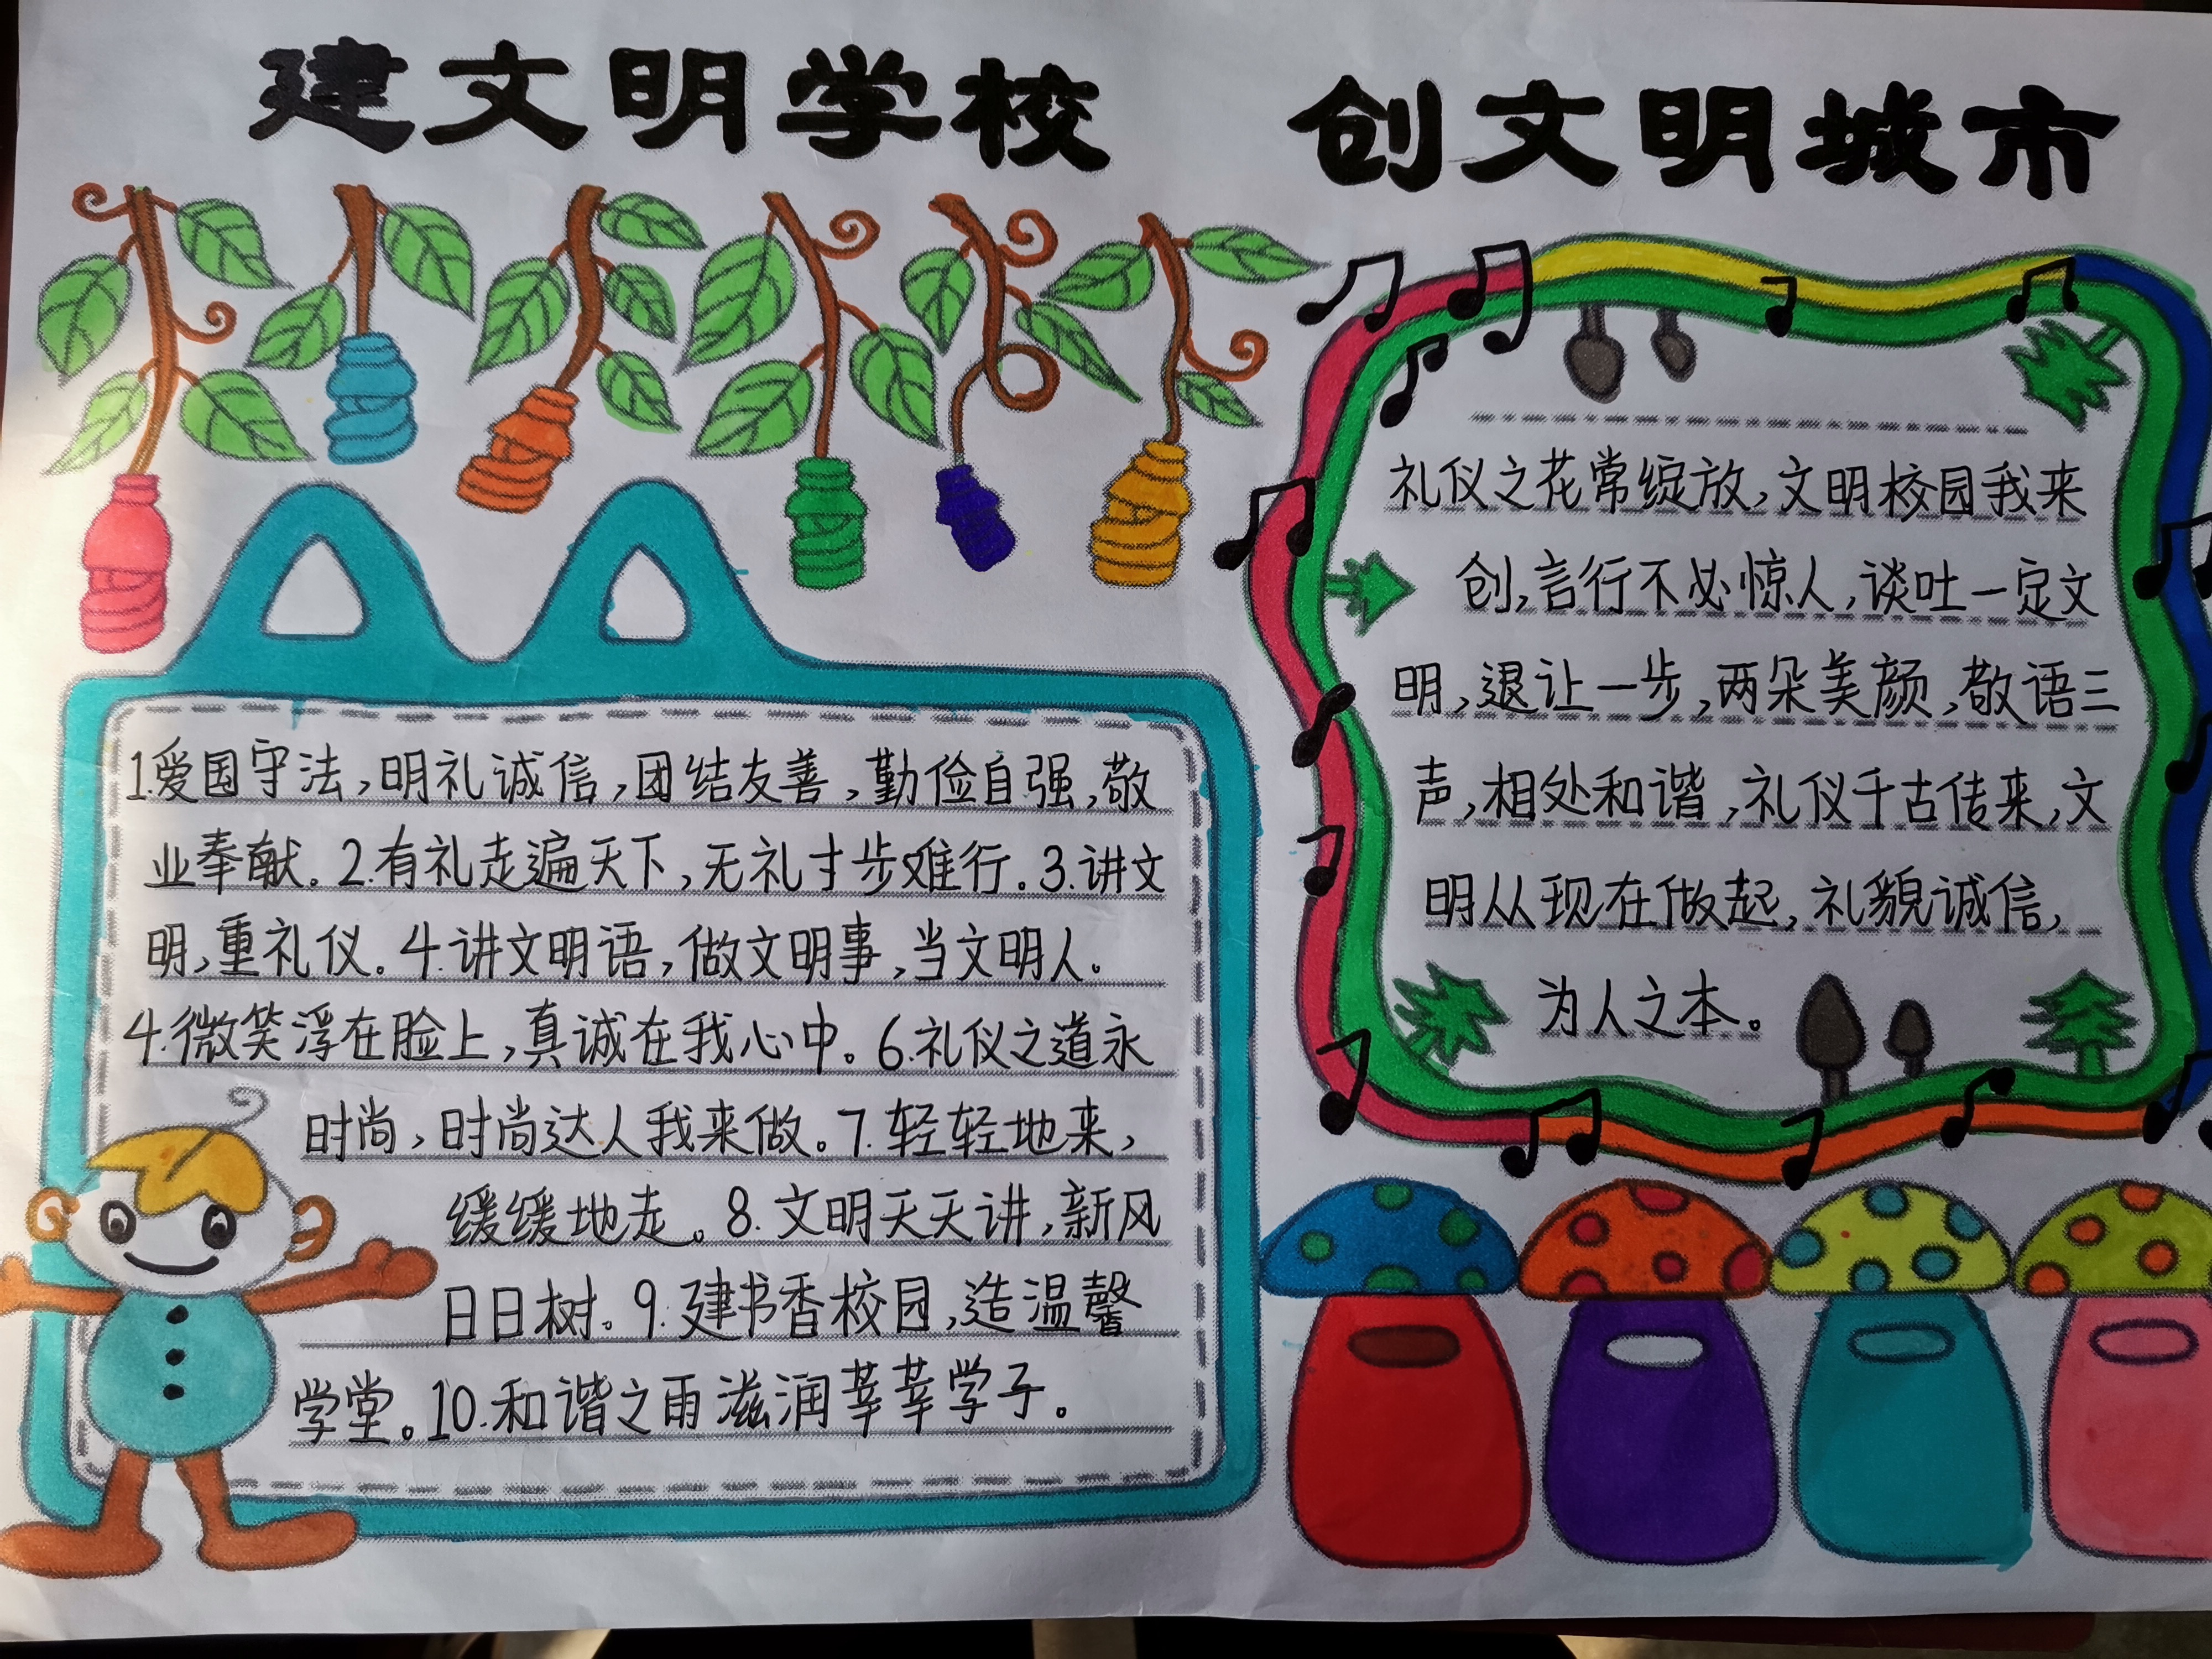 建文明学校 创文明城市
1.爱国守法,明礼诚信,团结友善,勤俭自强,敬
业奉献。2.有礼走遍天下,无礼寸步难行。3.讲文
明,重礼仪。4.讲文明语,做文明事,当文明人。
4.微笑浮在脸上,真诚在我心中。6.礼仪之道永
时尚,时尚达人我来做。7.轻轻地来,
缓缓地走。8.文明天天讲,新风
日日树。9.建书香校园,造温馨
学堂。10.和谐之雨滋润莘莘学子。
礼仪之花常绽放,文明校园我来
创,言行不必惊人,谈吐一定文
明,退让一步,两朵美颜,敬语三
声,相处和谐,礼仪千古传来,文
明从现在做起,礼貌诚信,
为人之本。